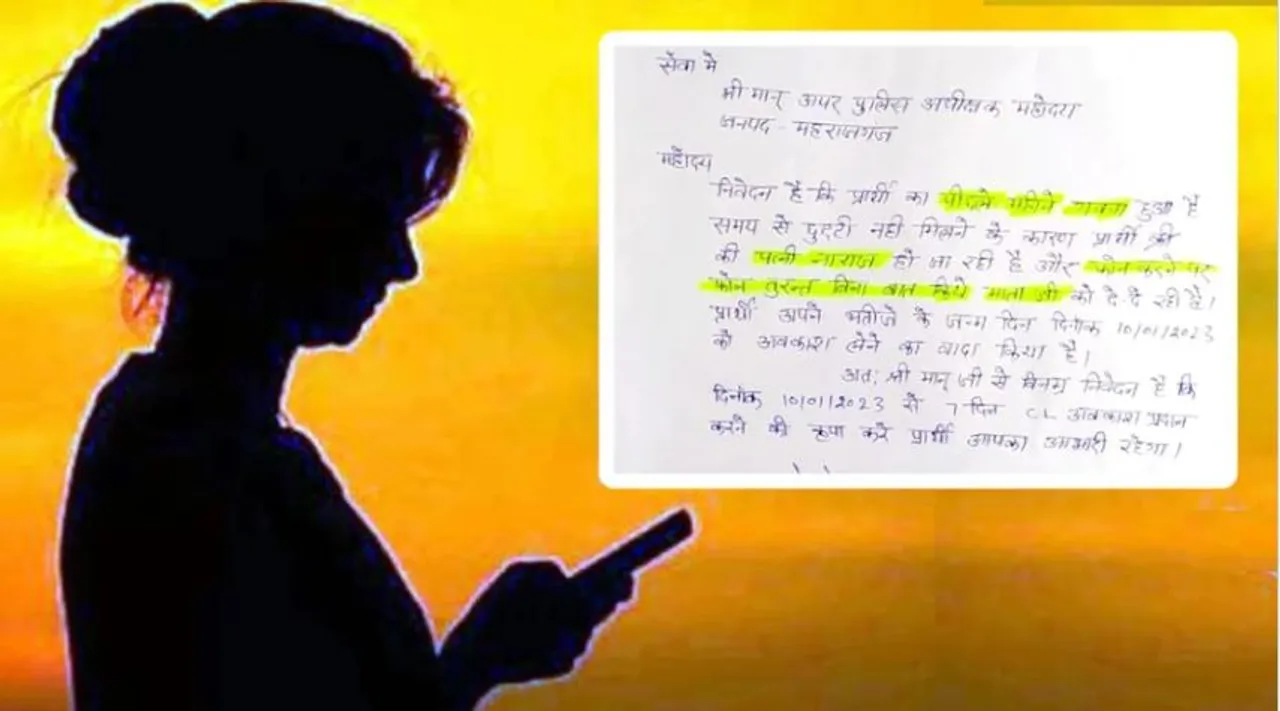 सेवा मे
श्रीमान् अपर पुलिस अधीक्षक महोदय
जनपद - महराजगंज
महोदय
निवेदन है कि प्रार्थी का पीछले महिने गवना हुआ है
समय से छुट्टी नही मिलने के कारण प्रार्थी
की पत्नी नाराज हो जा रही है और फोन करने पर
फोन तुरन्त बिना बात किये माता जी को दे-दे रही है।
प्रार्थी अपने भतीजे के जन्म दिन दिनांक 10/01/2023
को अवकाश लेने का वादा किया है।
अत: श्री मान् जी से विनम्र निवेदन है कि
दिनांक 10/01/2023 से 7 दिन CL अवकाश प्रदान
करने की कृपा करे प्रार्थी आपका आभारी रहेगा।